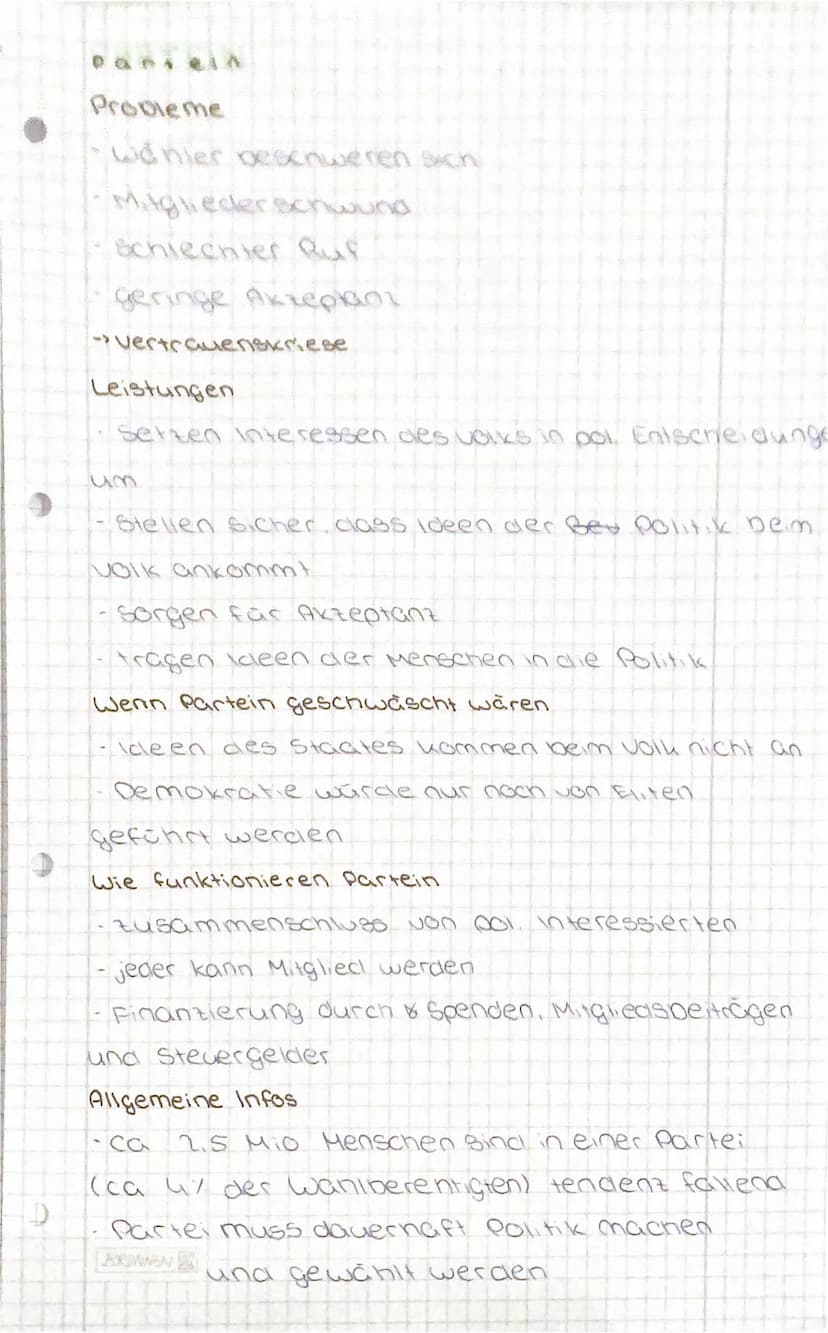 Partein
Probleme
- Wähler beschweren sich
- Mitgliederschwund
- schlechter Ruf
- geringe Akzeptanz
-> Vertrauenskriese
Leistungen
- setzen Interessen des Volks in pol. Entscheidunge
um
- Stellen sicher, dass Ideen der Politik beim
Volk ankommt
- sorgen für Akzeptanz
- tragen Ideen der Menschen in die Politik
Wenn Partein geschwäscht wären
- Ideen des Staates kommen beim Volk nicht an
- Demokratie würde nur noch von Eliten
geführt werden
Wie funktionieren Partein
- Zusammenschluss von pol. Interessierten
- jeder kann Mitglied werden
- Finanzierung durch Spenden, Mitgliedsbeiträgen
und Steuergelder
Allgemeine Infos
- ca 2.5 Mio Menschen sind in einer Partei
(ca 4% der Wahlberehtigten) tendenz fallend
- Partei muss dauerhaft Politik machen
und gewählt werden